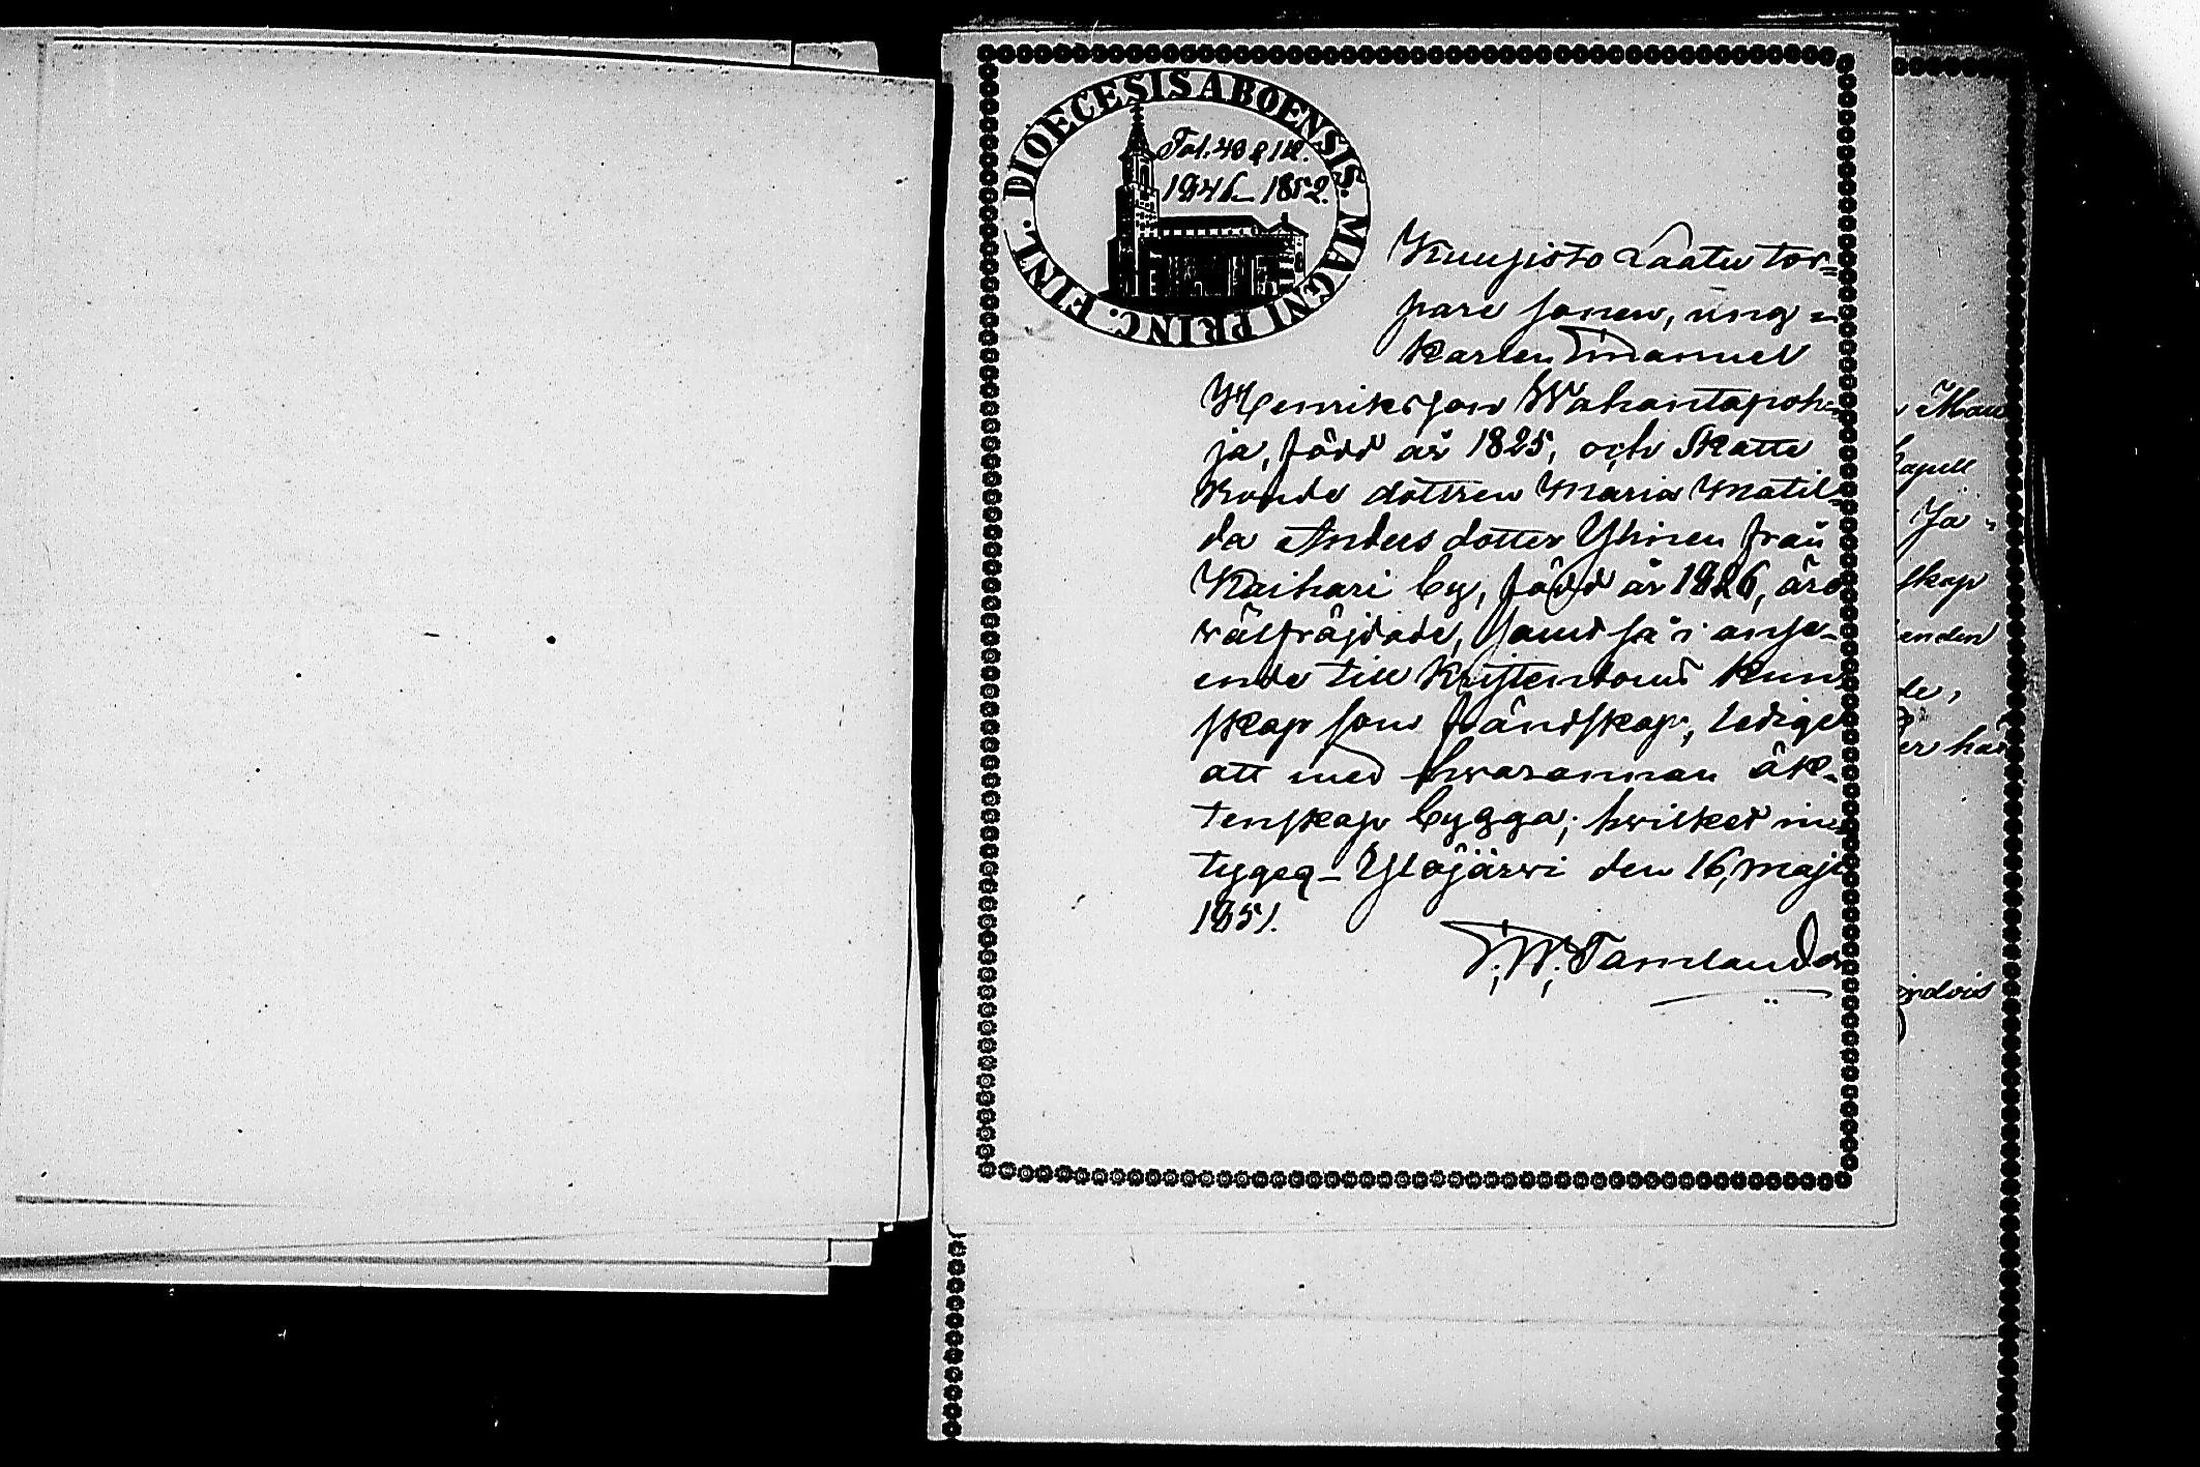 DIOECESIS ABOENSIS. MAGNI PRINC. FINL.
Fol. 40 & 112.
1846–1852.
Kuujisto Laatu tor=
pare sonen, ung=
karlen Emanuel
Henriksson Wahantapoh=
ja, född år 1825, och Skatte
bonde dottren Maria Matil=
da Anders dotter Ylinen från
Kaihari by, född år 1826, äro
välfräjdade, samt så i anse-
ende till Kristendoms kun
skap som frändskap, lediga
att med hvarannan äk-
tenskap bygga; hvilket in
tygas – Ylöjärvi den 16 maji
1851.
F. W. Tamlander
Mau
Capell
Ja=
skap
enden
de,
er här
indvis